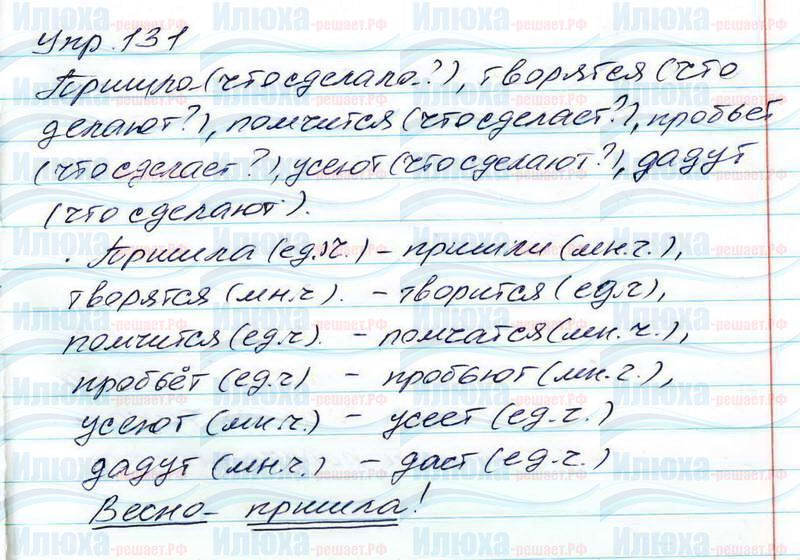 Упр. 131
Пришла (что сделала?), творятся (что
делают?), помчится (что сделает?), пробьёт
(что сделает?), усеют (что сделают?), дадут
(что сделают).
Пришла (ед.ч.) – пришли (мн.ч.),
творятся (мн.ч). – творится (ед.ч),
помчится (ед.ч). – помчатся (мн.ч.),
пробьёт (ед.ч) – пробьют (мн.ч.),
усеют (мн.ч.) – усеет (ед.ч.)
дадут (мн.ч.) – даст (ед.ч.)
Весна пришла!